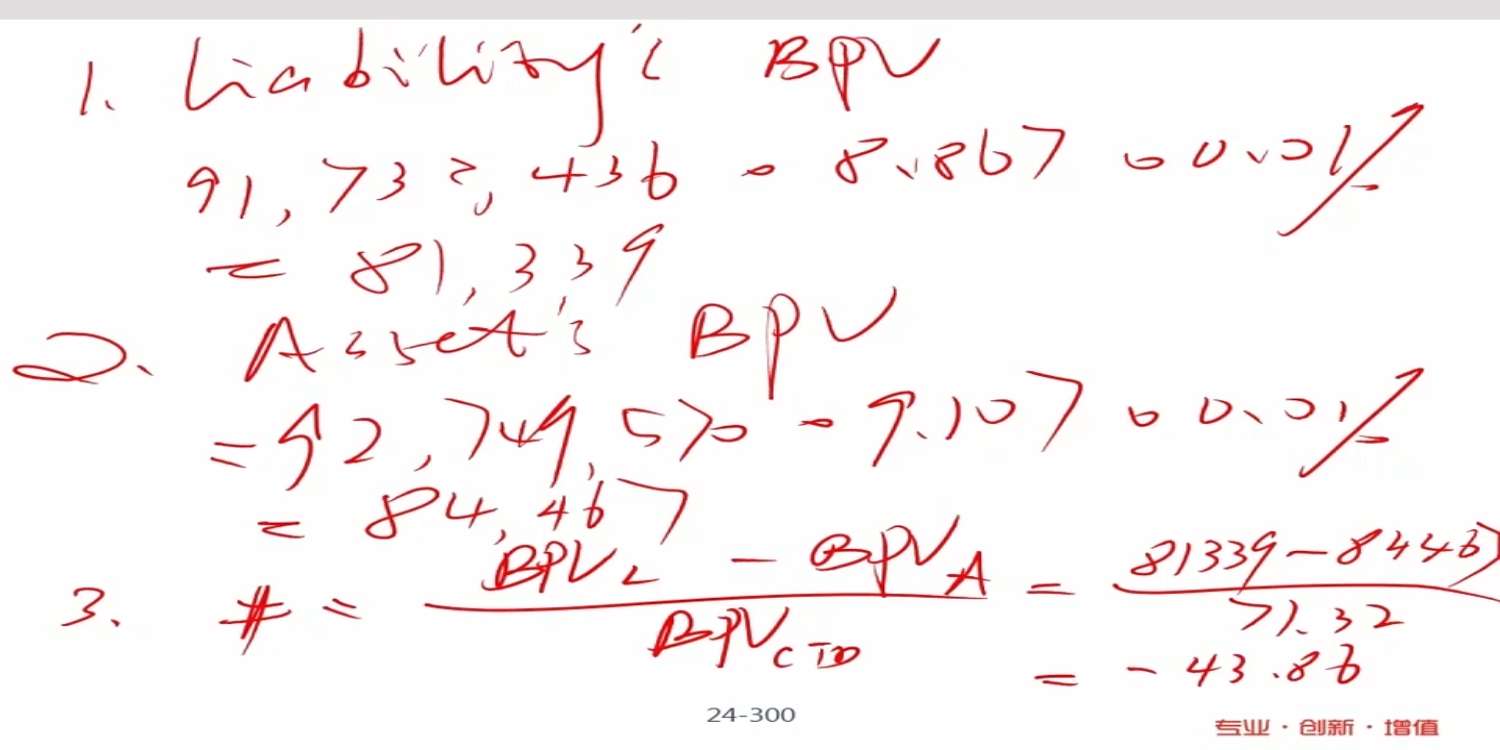 1. Liability's BPV
91,732,436 · 8.867 · 0.01%
= 81,339
2. Asset's BPV
= 92,749,570 · 9.107 · 0.01%
= 84,467
3. # = (BPV_L - BPV_A) / BPV_CTD = (81339 - 84467) / 71.32
= -43.86
24-300
专业 · 创新 · 增值